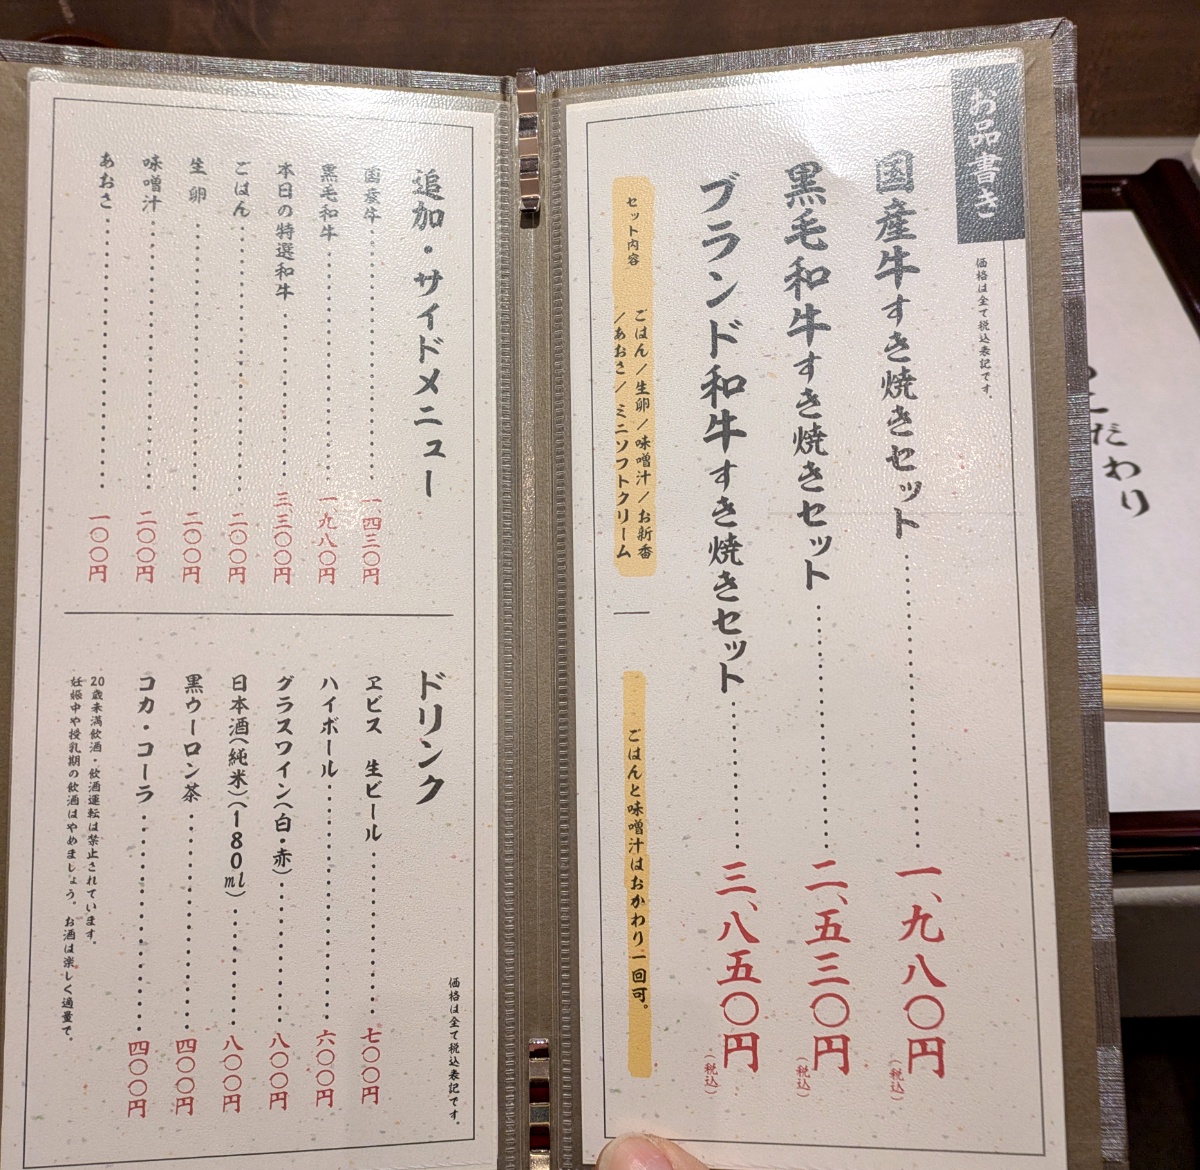 お品書き
価格は全て税込表記です。
国産牛すき焼きセット……………一、九八〇円（税込）
黒毛和牛すき焼きセット……………二、五三〇円（税込）
ブランド和牛すき焼きセット……………三、八五〇円（税込）
セット内容
ごはん／生卵／味噌汁／お新香
／あおさ／ミニソフトクリーム
ごはんと味噌汁はおかわり一回可。
追加・サイドメニュー
国産牛……………一、四三〇円
黒毛和牛……………一、九八〇円
本日の特選和牛……………三、三〇〇円
ごはん……………二〇〇円
生卵……………二〇〇円
味噌汁……………二〇〇円
あおさ……………一〇〇円
ドリンク
ヱビス 生ビール……………七〇〇円
ハイボール……………六〇〇円
グラスワイン（白・赤）……………八〇〇円
日本酒（純米）（180ml）……………八〇〇円
黒ウーロン茶……………四〇〇円
コカ・コーラ……………四〇〇円
価格は全て税込表記です。
20歳未満飲酒・飲酒運転は禁止されています。
妊娠中や授乳期の飲酒はやめましょう。お酒は楽しく適量で。
こだわり